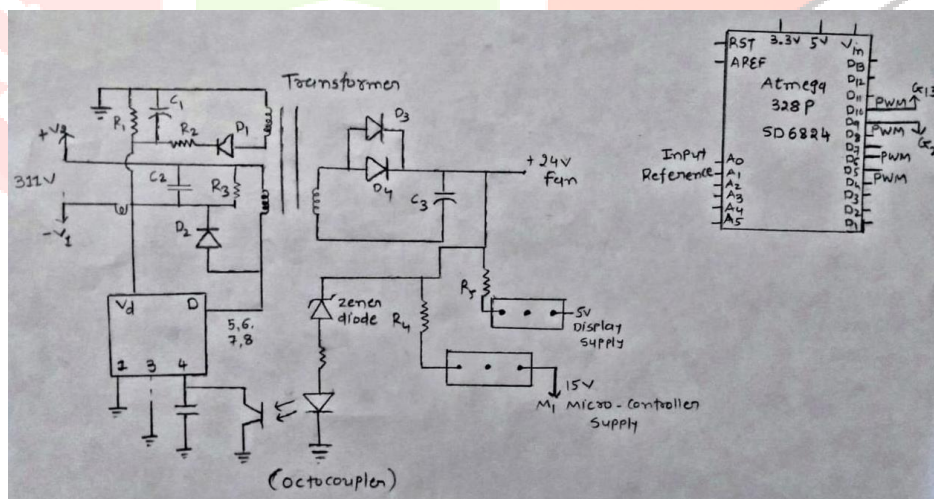 Transformer
C1
R1
R2
D1
D3
D4
+V2
311V
-V1
C2
R3
D2
C3
+24V
Fan
Vd
D
5,6,
7,8
1
3
4
zener
diode
R4
R5
5V
Display
Supply
15V
M1 Micro-Controller
Supply
(octocoupler)
RST
3.3V
5V
Vin
AREF
Atmega
328P
SD6824
Input
Reference
A0
A1
A2
A3
A4
A5
D13
D12
D11
D10
D9
D8
D7
D6
D5
D4
D3
D2
D1
PWM
G13
PWM
PWM
PWM